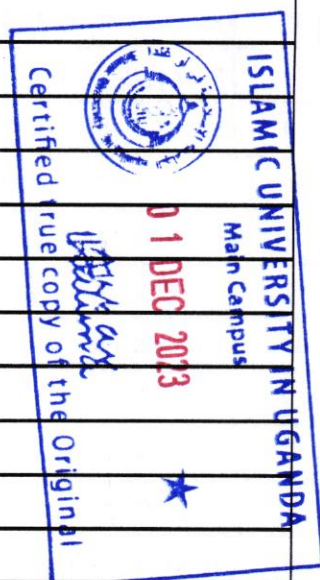 ISLAMIC UNIVERSITY IN UGANDA
Main Campus
0 1 DEC 2023
Certified true copy of the Original